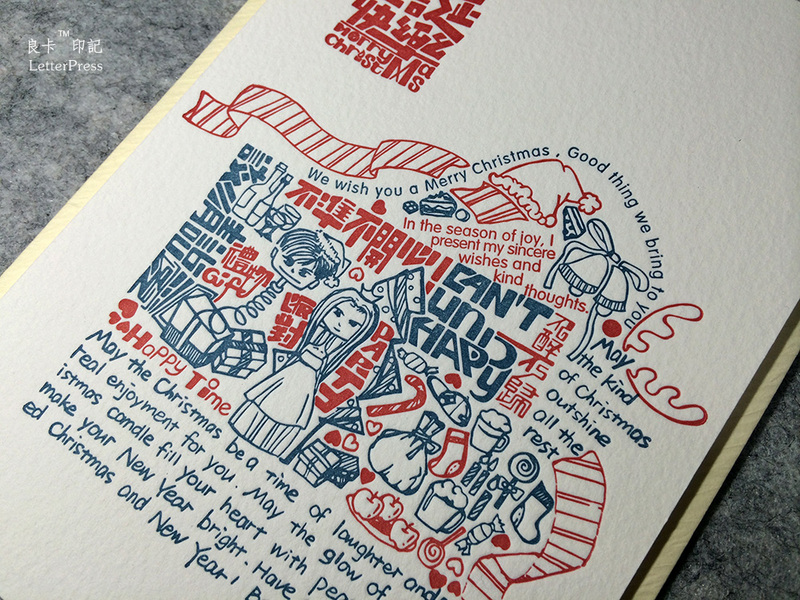 良卡™印記
LetterPress
Merry
ChristMas
We wish you a Merry Christmas , Good thing we bring to you
不準不開心
In the season of joy, I
present my sincere
wishes and
kind thoughts.
CAN'T
UN
HAPY
不醉
不歸
禮物
Gify
PARty
Happy Time
May
the kind
of Christmas
outshine
all the
rest
May the Christmas be a time of laughter and
real enjoyment for you. May the glow of
istmas candle fill your heart with pea
make your New Year bright. Have
ed Christmas and New Year! B